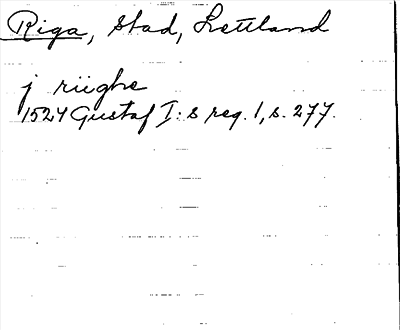 Riga, Stad, Lettland
j riighe
1524 Gustaf I:s reg. 1, s. 277.